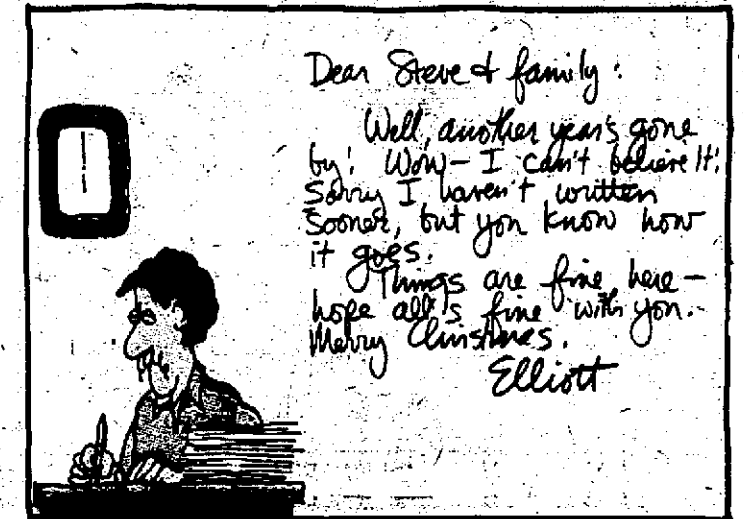 Dear Steve & family:
Well, another year's gone
by! Wow – I can't believe it!
Sorry I haven't written
sooner, but you know how
it goes.
Things are fine here –
hope all's fine with you.
Merry Christmas.
Elliott